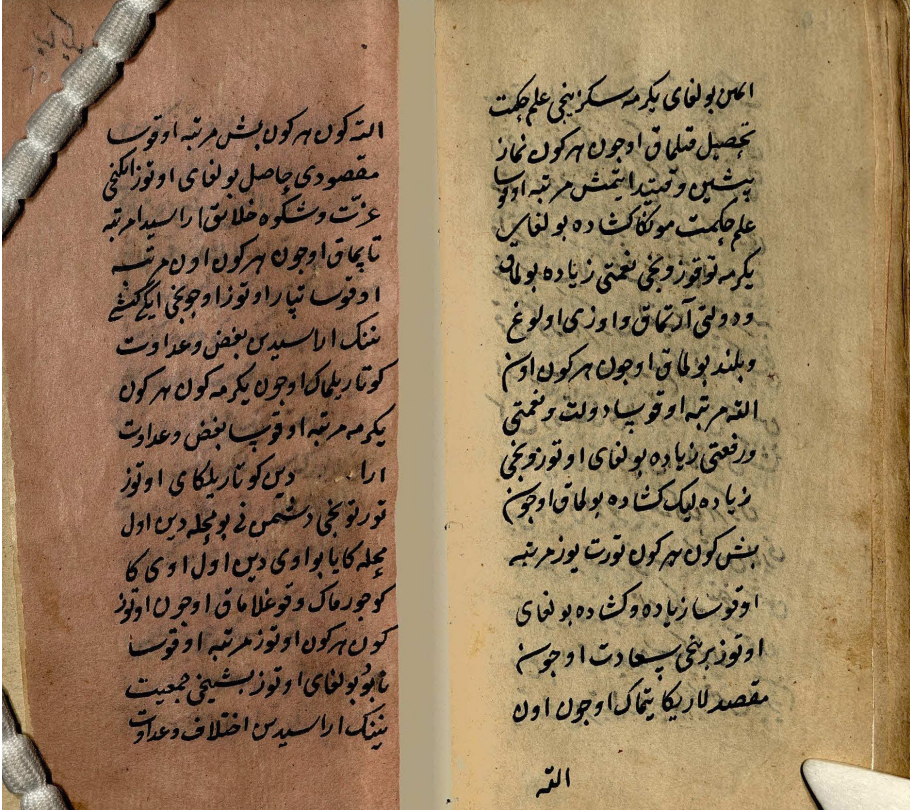 ایمن بولغای یکرمه سکزینجی علم حکمت
تحصیل قیلماق اوچون هر کون نماز
پیشین وقتیدا ایتمش مرتبه اوقوسا
علم حکمت مونکا کشاده بولغای
یکرمه توقوزونجی نعمتی زیاده بولماق
و دولتی آرتماق و اوزی اولوغ
و بلند بولماق اوچون هر کون اون
التە مرتبه اوقوسا دولت و نعمتی
و رفعتی زیاده بولغای اوتوزونجی
زیاده لیک کشاده بولماق اوجون
بش کون هر کون تورت یوز مرتبه
اوقوسا زیاده و کشاده بولغای
اوتوز برنجی سعادت اوجون
مقصدلاریکا یتماک اوجون اون
التە
التە کون هر کون بش مرتبه اوقوسا
مقصودی حاصل بولغای اوتوز ایکنجی
عزت و شکوه خلایق اراسیدا مرتبه
تاپماق اوجون هر کون اون مرتبه
اوقوسا تاپار اوتوز اوجونجی ایکی کشی
ننک اراسیدین بغض و عداوت
کوتاریلماک اوجون یکرمه کون هر کون
یکرمه مرتبه اوقوسا بغض و عداوت
ارا دین کوتاریلکای اوتوز
تورتونجی دشمن نی بو محله دین اول
محله کا یا بو اوی دین اول اوی کا
کوجورماک و قوغلاماق اوجون اوتوز
کون هر کون اوتوز مرتبه اوقوسا
نابود بولغای اوتوز بشینجی جمعیت
نینک اراسیدین اختلاف و عداوت